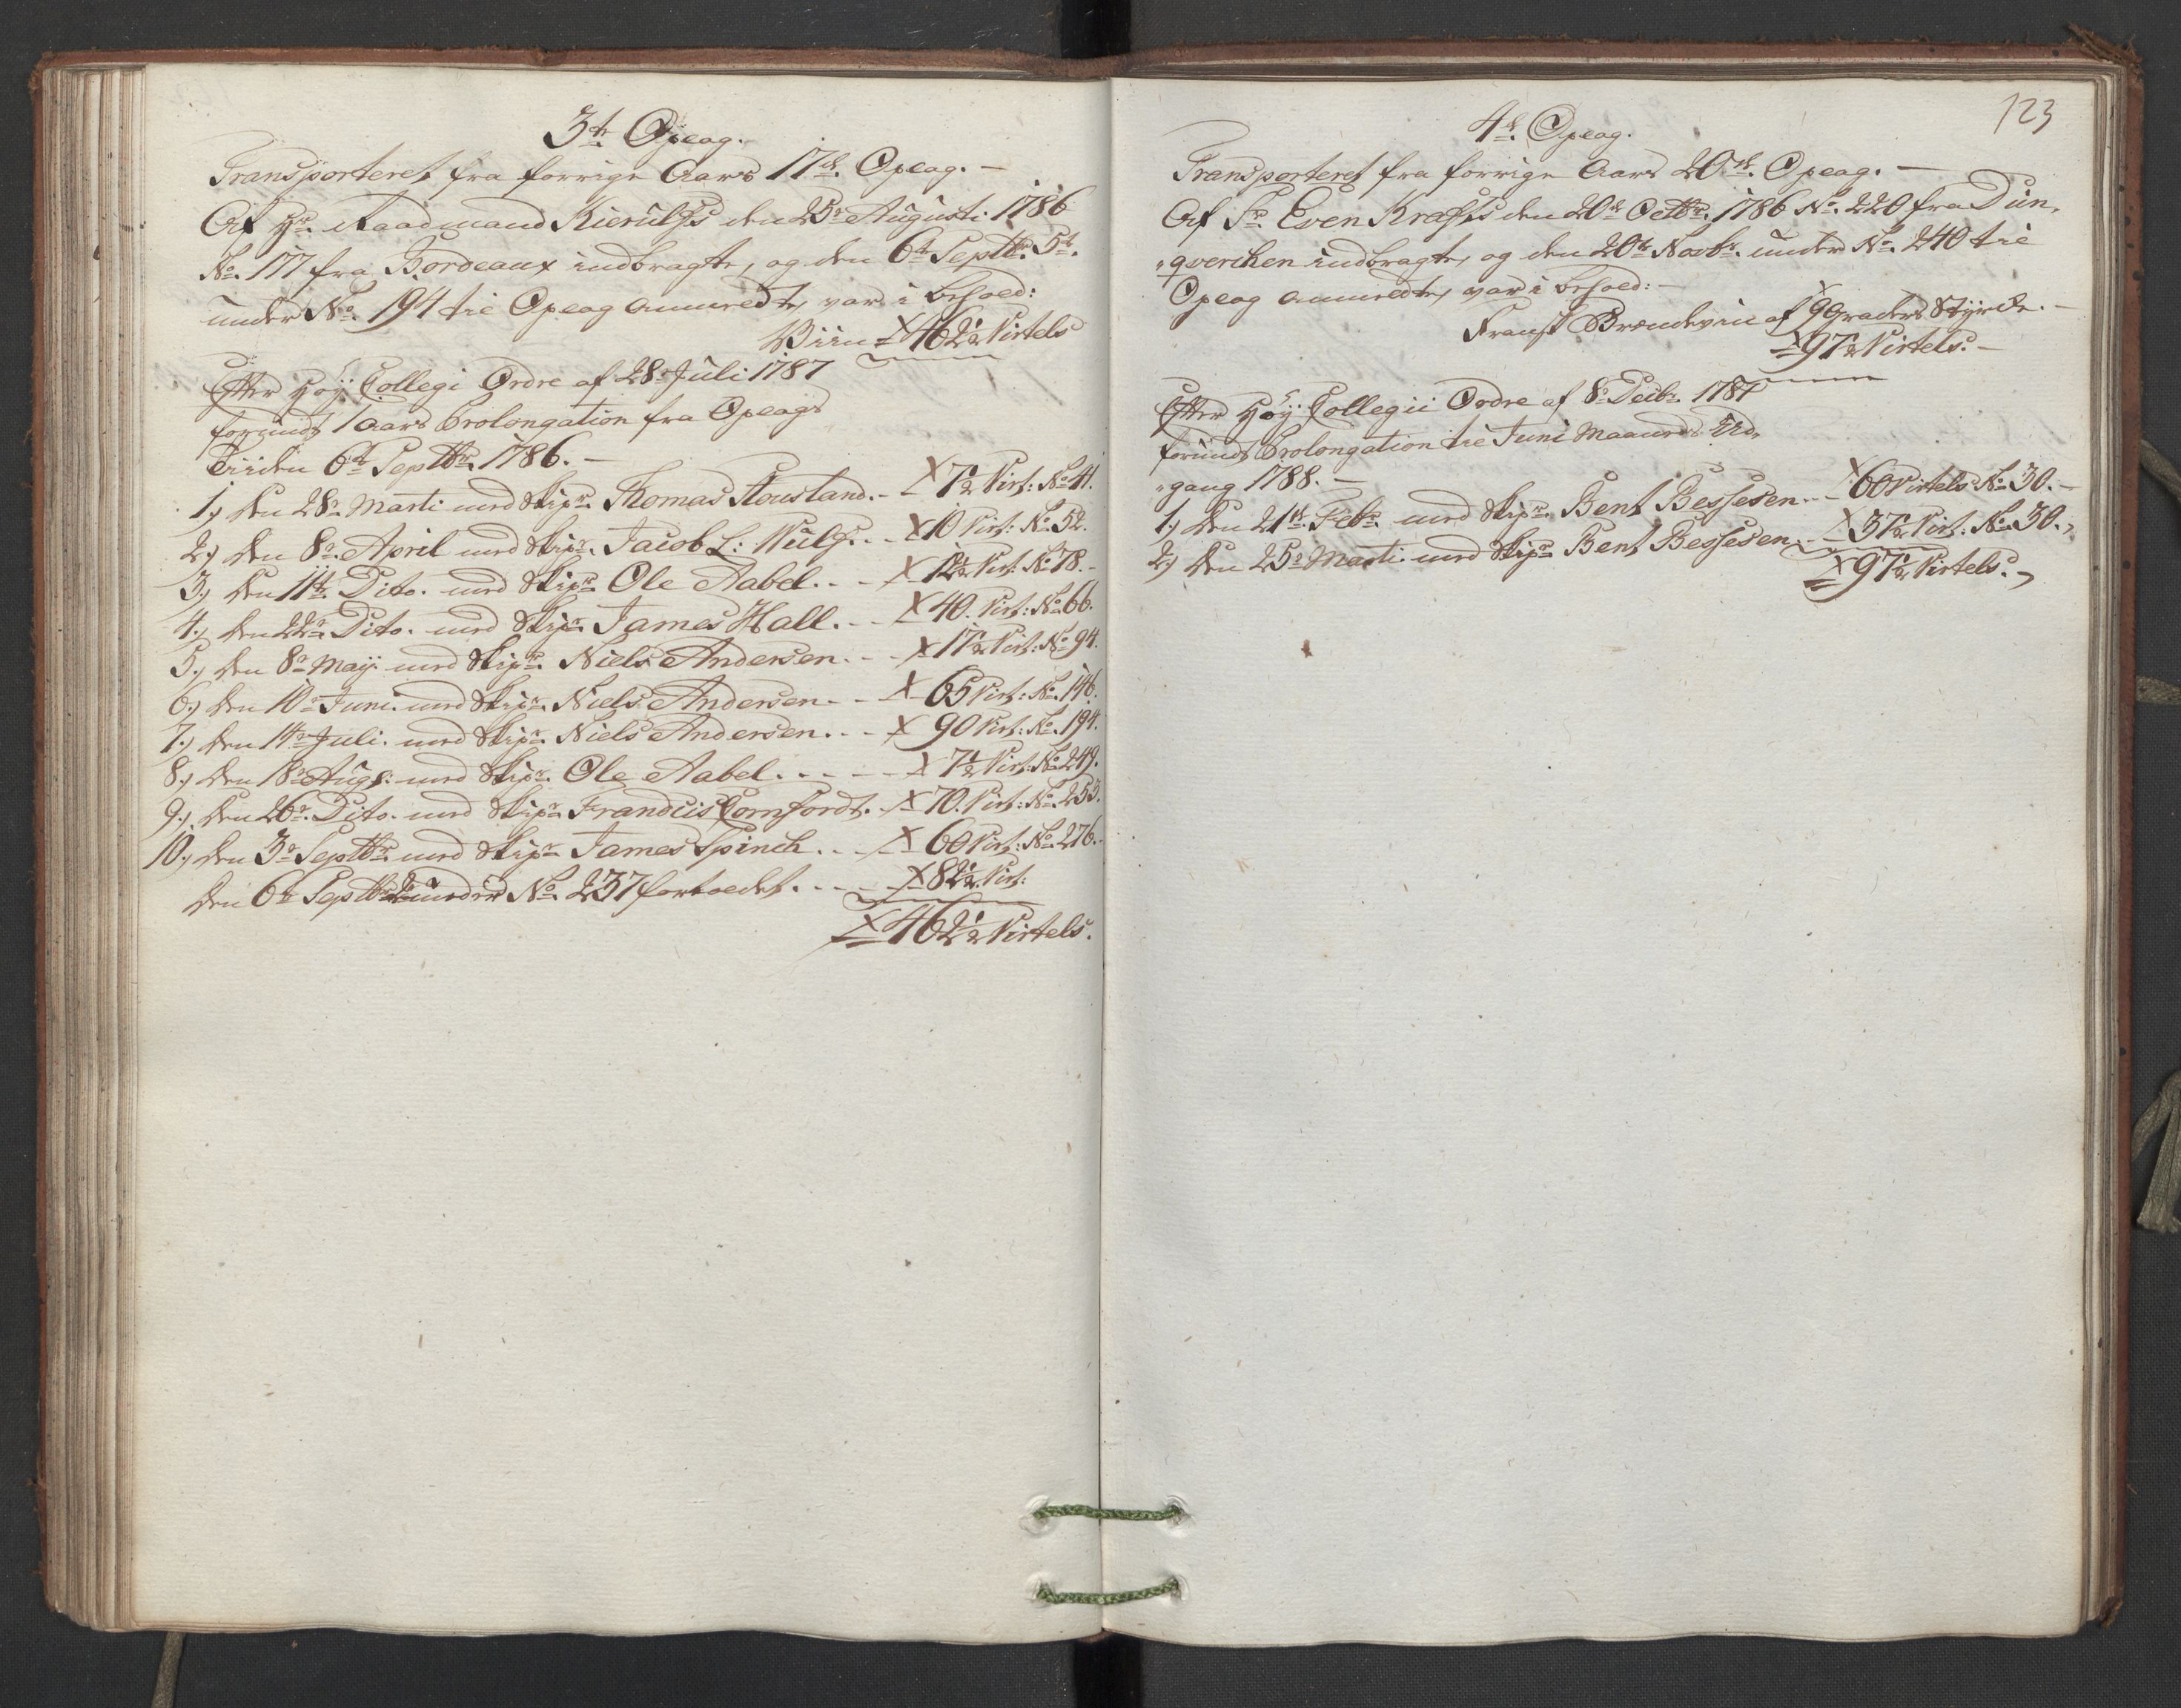 3de Oplag.
Transporteret fra forrige Aars 17de Oplag. —
Af Hr. Raadmand Kierulfs den 25de Augusti 1786
No. 177 fra Bordeaux indbragte, og den 6te Septbr.
under No. 194 til Oplag anmeldte, var i behold:
Viin 462½ Virtels
Efter Høy Collegi Ordre af 28de Juli 1787
forundt 1 Aars Prolongation fra Oplags
Tiiden 6te Septbr. 1786. —
1.) den 28de Marti med Skipr. Thomas . - 7½ Virt: No. 41.
2.) den 8de April med Skipr. Jacob L: Wulf. - - 10 Virt: No. 52.
3.) den 11te Dito. med Skipr. Ole Aabel. - - 12½ Virt. No. 78. -
4.) den 22de Dito. med Skipr. James Hall. - - 40. Virt: No. 66.
5.) den 8de Maji. med Skipr. Niels Andersen. - - 17½ Virt: No. 94.
6.) den 10de Juni. med Skipr. Niels Andersen. - - 65 Virt: No. 146.
7.) den 14de Juli. med Skipr. Niels Andersen. - - 90 Virt: No. 194.
8.) den 18de Aug: med Skipr. Ole Aabel. - - - - 7½ Virt: No. 249.
9.) den 26de Dito. med Skipr. Frandcis Cornfordt. - 70. Virt: No. 253.
10.) den 3de Septbr. med Skipr. James Spinck. - - 60 Virt: No. 276. -
den 6te Septbr. under No. 237 fortoldet. - - - - 82½ Virt:
462½ Virtels.
123
4de Oplag.
Transporteret fra forrige Aars 20de Oplag. —
Af Sr. Even Krafts den 20de Octbr. 1786 No. 220 fra Dün-
"qverchen indbragte, og den 20de Novbr. under No. 240 til
Oplag anmeldte, var i behold: —
Fransk Brendeviin af 9 Graders Styrke. —
97½ Virtels. —
Efter Høy Collegii Ordre af 8de Decbr. 1787
forundt Prolongation til Juni Maaneds Ud-
"gang 1788. —
1.) den 21de Febr. med Skipr. Bent Bessesen. - - 60 Virtels No. 30. —
2.) den 25de Marti. med Skipr. Bent Bessesen. - - 37½ Virt: No. 30.
97½ Virtels.